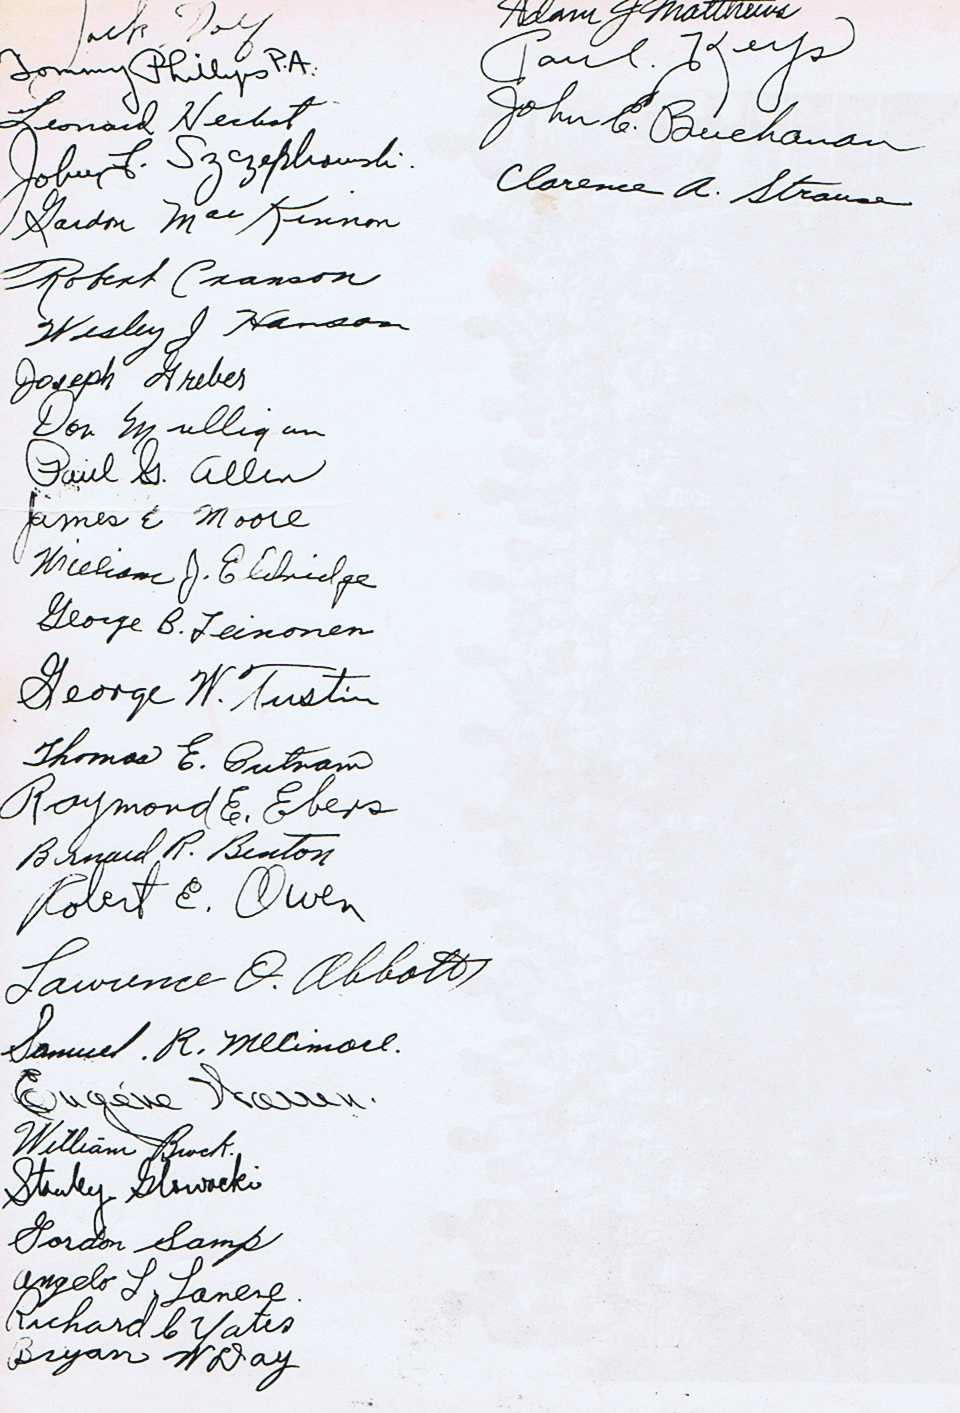 Jack
Tommy Phillips P.A.
Leonard Herbst
F. Szczepkowski.
Gordon MacKinnon
Robert Cranson
Wesley J Hanson
Joseph Greber
Don Mulligan
Paul G. Allen
James E Moore
William J. Eldridge
George B. Leinonen
George W. Tustin
Thomas E. Putnam
Raymond E. Ebers
Bernard R. Benton
Robert E. Owen
Lawrence O. Abbott
Samuel. R.
Eugene Warren.
William Brock.
Stanley Glowacki
Gordon Samp
Angelo L.
Richard C Yates
Bryan W Day
Adam J Matthews
Paul. Keys
John E. Buchanan
Clarence A. Strause